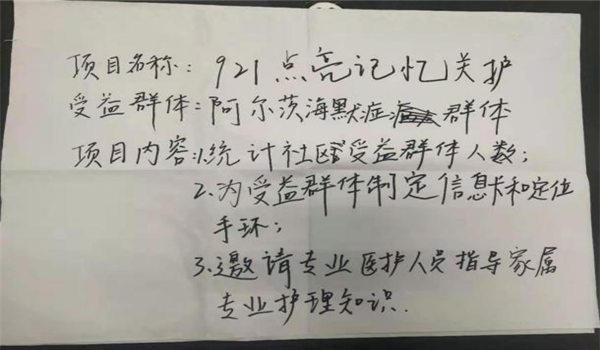 项目名称：921点亮记忆关护
受益群体：阿尔茨海默症群体
项目内容：1.统计社区受益群体人数；
2.为受益群体制定信息卡和定位
手环；
3.邀请专业医护人员指导家属
专业护理知识.